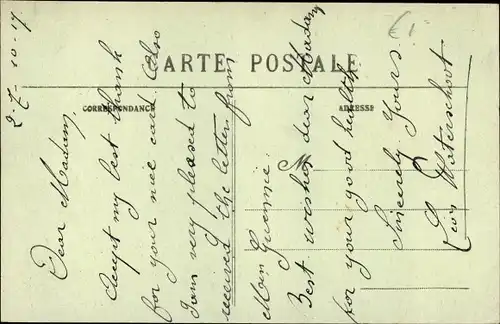 2-7-10-7
CARTE POSTALE
CORRESPONDANCE
ADRESSE
M
Dear Madam,
Accept my best thank
for your nice card. Also
I am very pleased to
received the letter from
Mon
Best wishes dear Madam
for your good health.
Sincerely Yours.
Waterschoot